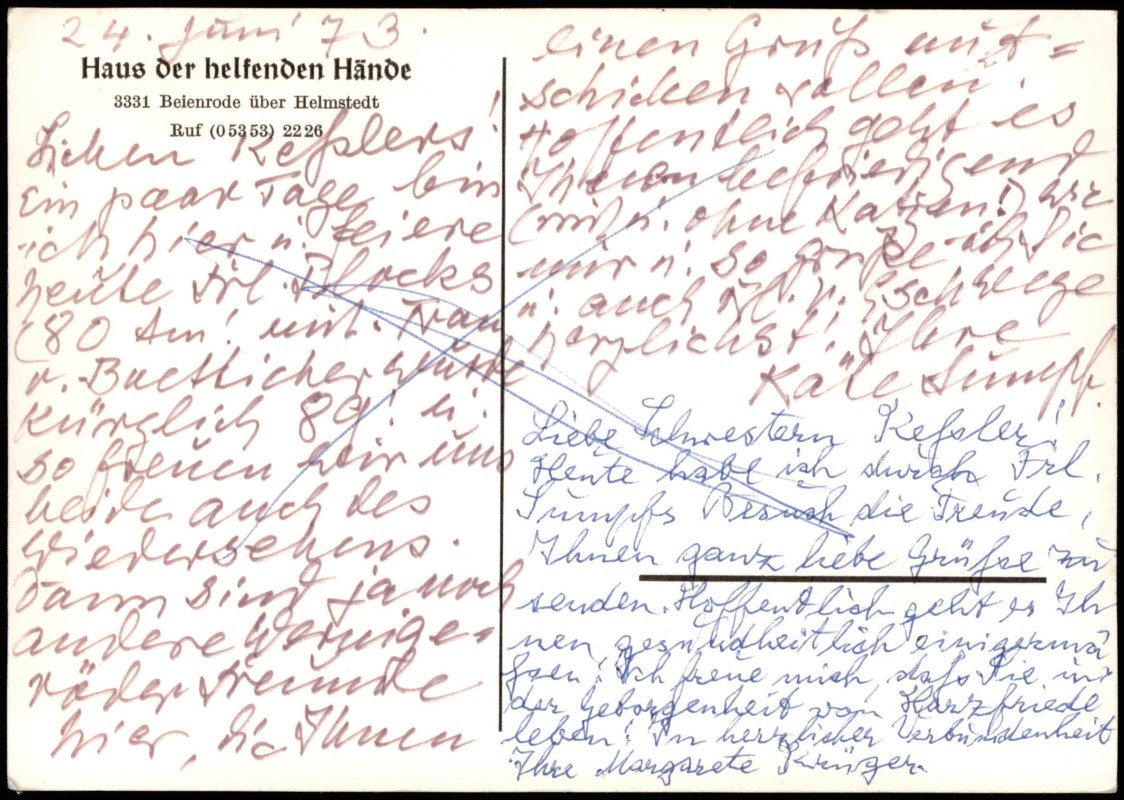 24. Juni 73.
Haus der helfenden Hände
3331 Beienrode über Helmstedt
Ruf (05353) 2226
Lieben Keßlers!
Ein paar Tage bin
ich hier u. feiere
heute Frl. Blocks
(80 Am! mit. Frau
v. Boetticher wurde
kürzlich 89! u.
so freuen wir uns
beide auch des
Wiedersehens.
Dann sind ja noch
andere Wernige-
röder Freunde
hier, die Ihnen
einen Gruß mit=
schicken wollen.
Hoffentlich geht es
Ihnen befriedigend
(mit u. ohne Katzen!) wie
mir u. so grüße ich Sie
u. auch Frl. v.
herzlichst! Ihre
Käte Sumpf.
Liebe Schwestern Keßler!
Heute habe ich durch Frl.
Sumpfs Besuch die Freude,
Ihnen ganz liebe Grüße zu
senden. Hoffentlich geht es Ih
nen gesundheitlich einigermä
ßen! Ich freue mich, daß Sie in
der Geborgenheit von Harzfriede
leben! In herzlicher Verbundenheit
Ihre Margarete Krüger.